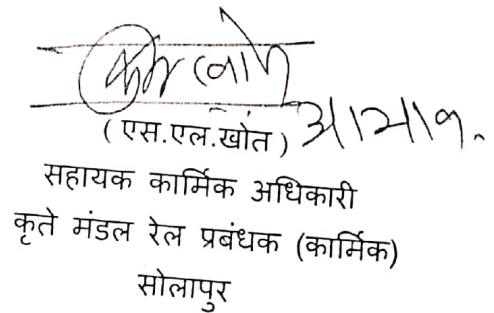 ( एस.एल.खोत )
सहायक कार्मिक अधिकारी
कृते मंडल रेल प्रबंधक (कार्मिक)
सोलापुर